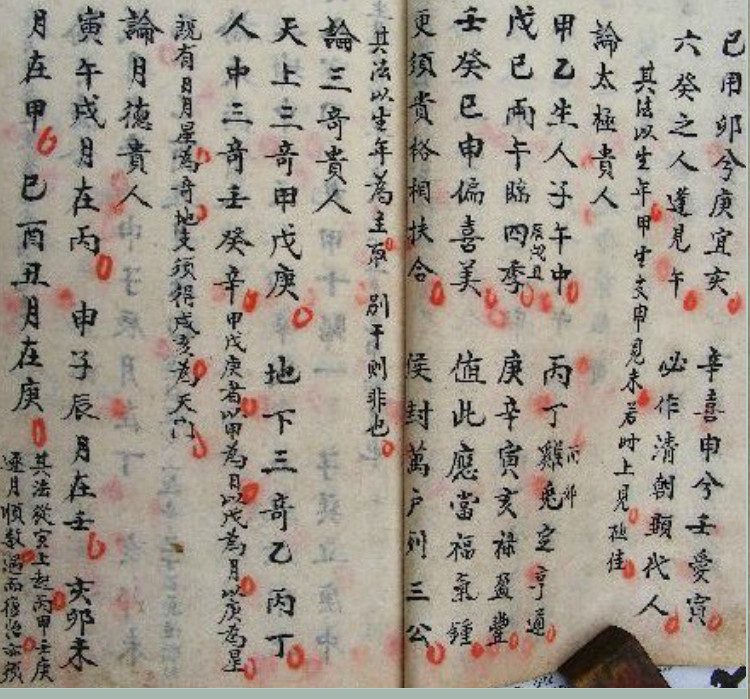 已用卯兮庚宜亥 辛喜申兮壬愛寅
六癸之人逢見午 必作清朝顯代人
其法以生年甲生支申見未若时上見極佳
論太極貴人
甲乙生人子午中 丙丁雞兔定亨通
酉卯
戊己兩干臨四季 庚辛寅亥祿盈豐
辰戌丑
壬癸巳申偏喜美 值此應當福氣鍾
更須貴格相扶合 侯封萬戶列三公
其法以生年為主 別干則非也
論三奇貴人
天上三奇甲戊庚 地下三奇乙丙丁
人中三奇壬癸辛 甲戊庚者以甲為日以戊為月以庚為星
既有日月星為奇地支須得戌亥為天門
論月德貴人
寅午戌月在丙 申子辰月在壬 亥卯未
月在甲 巳酉丑月在庚 其法從寅上起丙甲壬庚
逐月順数過而復始亦須